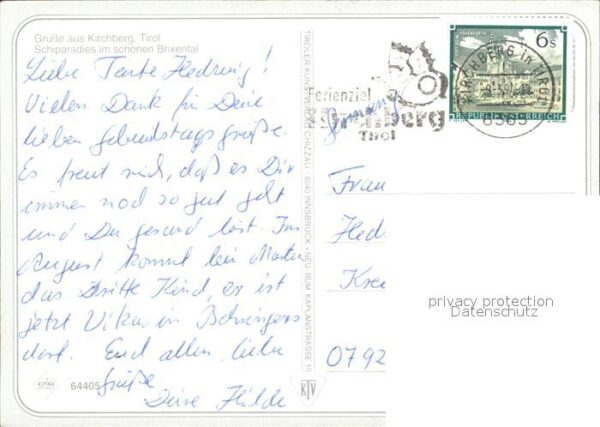 Grüße aus Kirchberg, Tirol
Schiparadies im schönen Brixental
Liebe Tante Hedwig!
Vielen Dank für Deine
lieben Geburtstagsgrüße.
Es freut mich, daß es Dir
immer noch so gut geht
und Du gesund bist. Im
August kommt bei Martin
das Dritte Kind, er ist
jetzt Vikar in
dorf. Euch allen liebe
Grüße
Deine Hilde
64405
TIROLER KUNSTVERLAG CHIZZALI · 6040 INNSBRUCK · NEU-RUM KAPLANSTRASSE 10
KTV
Ferienziel
Kirchberg
Tirol
Germany
6 s
REPUBLIK ÖSTERREICH
KIRCHBERG in TIROL
6365
Frau
Hed
Kre
0792
privacy protection
Datenschutz